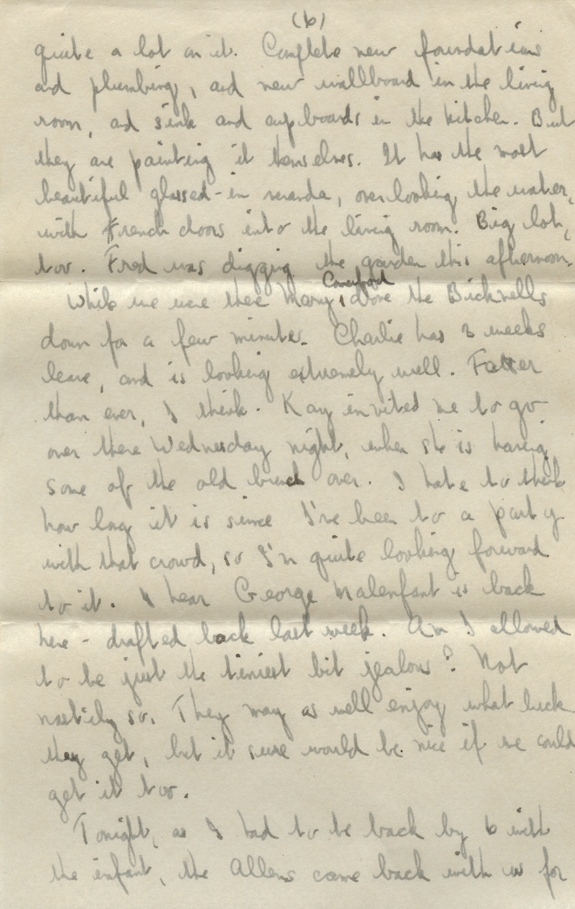 (6)
quite a lot on it. Complete new foundations
and plumbing, and new wallboard in the living
room, ad sink and cupboards in the kitchen. But
they are painting it themselves. It has the most
beautiful glassed-in veranda, overlooking the water,
with French doors into the living room. Big lot,
too. Fred was digging the garden this afternoon.
While we were there Mary drove the Bicknells
down for a few minutes. Charlie has 3 weeks
leave, and is looking extremely well. Fatter
than ever, I think. Kay invited me to go
over there Wednesday night, when she is having
some of the old bunch over. I hate to think
how long it is since I've been to a party
with that crowd, so I'm quite looking forward
to it. I hear George Malenfant is back
here - drafted back last week. Am I allowed
to be just the tiniest bit jealous? Not
nastily so. They may as well enjoy what luck
they get, but it sure would be nice if we could
get it too.
Tonight, as I had to be back by 6 with
the infant, the Allens came back with us for